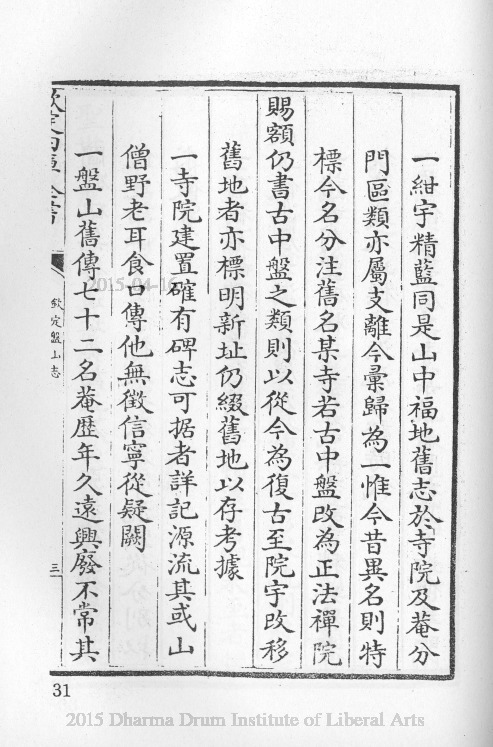 一紺宇精藍同是山中福地舊志於寺院及菴分
門區類亦屬支離今彙歸為一惟今昔異名則特
標今名分注舊名某寺若古中盤改為正法禪院
賜額仍書古中盤之類則以從今為復古至院宇改移
舊地者亦標明新址仍綴舊地以存考據
一寺院建置確有碑志可据者詳記源流其或山
僧野老耳食口傳他無徵信寧從疑闕
一盤山舊傳七十二名菴歷年久遠興廢不常其
欽定四庫全書
欽定盤山志
三
31
2015-04-16
2015 Dharma Drum Institute of Liberal Arts